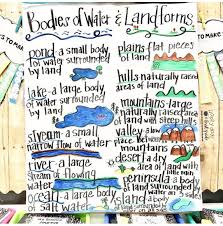 Bodies of Water & Landforms
pond- a small body
of water surrounded
by land
lake- a large body
of water surrounded
by land
stream- a small
narrow flow of water
river- a large
stream of flowing
water
ocean- a large body
of salt water
plains- flat pieces
of land
hills- naturally raised
areas of land
mountains- large
naturally raised
area of land
with steep hills
valley- a low
place between
mountains
desert- a dry
area of land
peninsula- a body
of land surrounded by
water on 3 sides
island- a body
of land